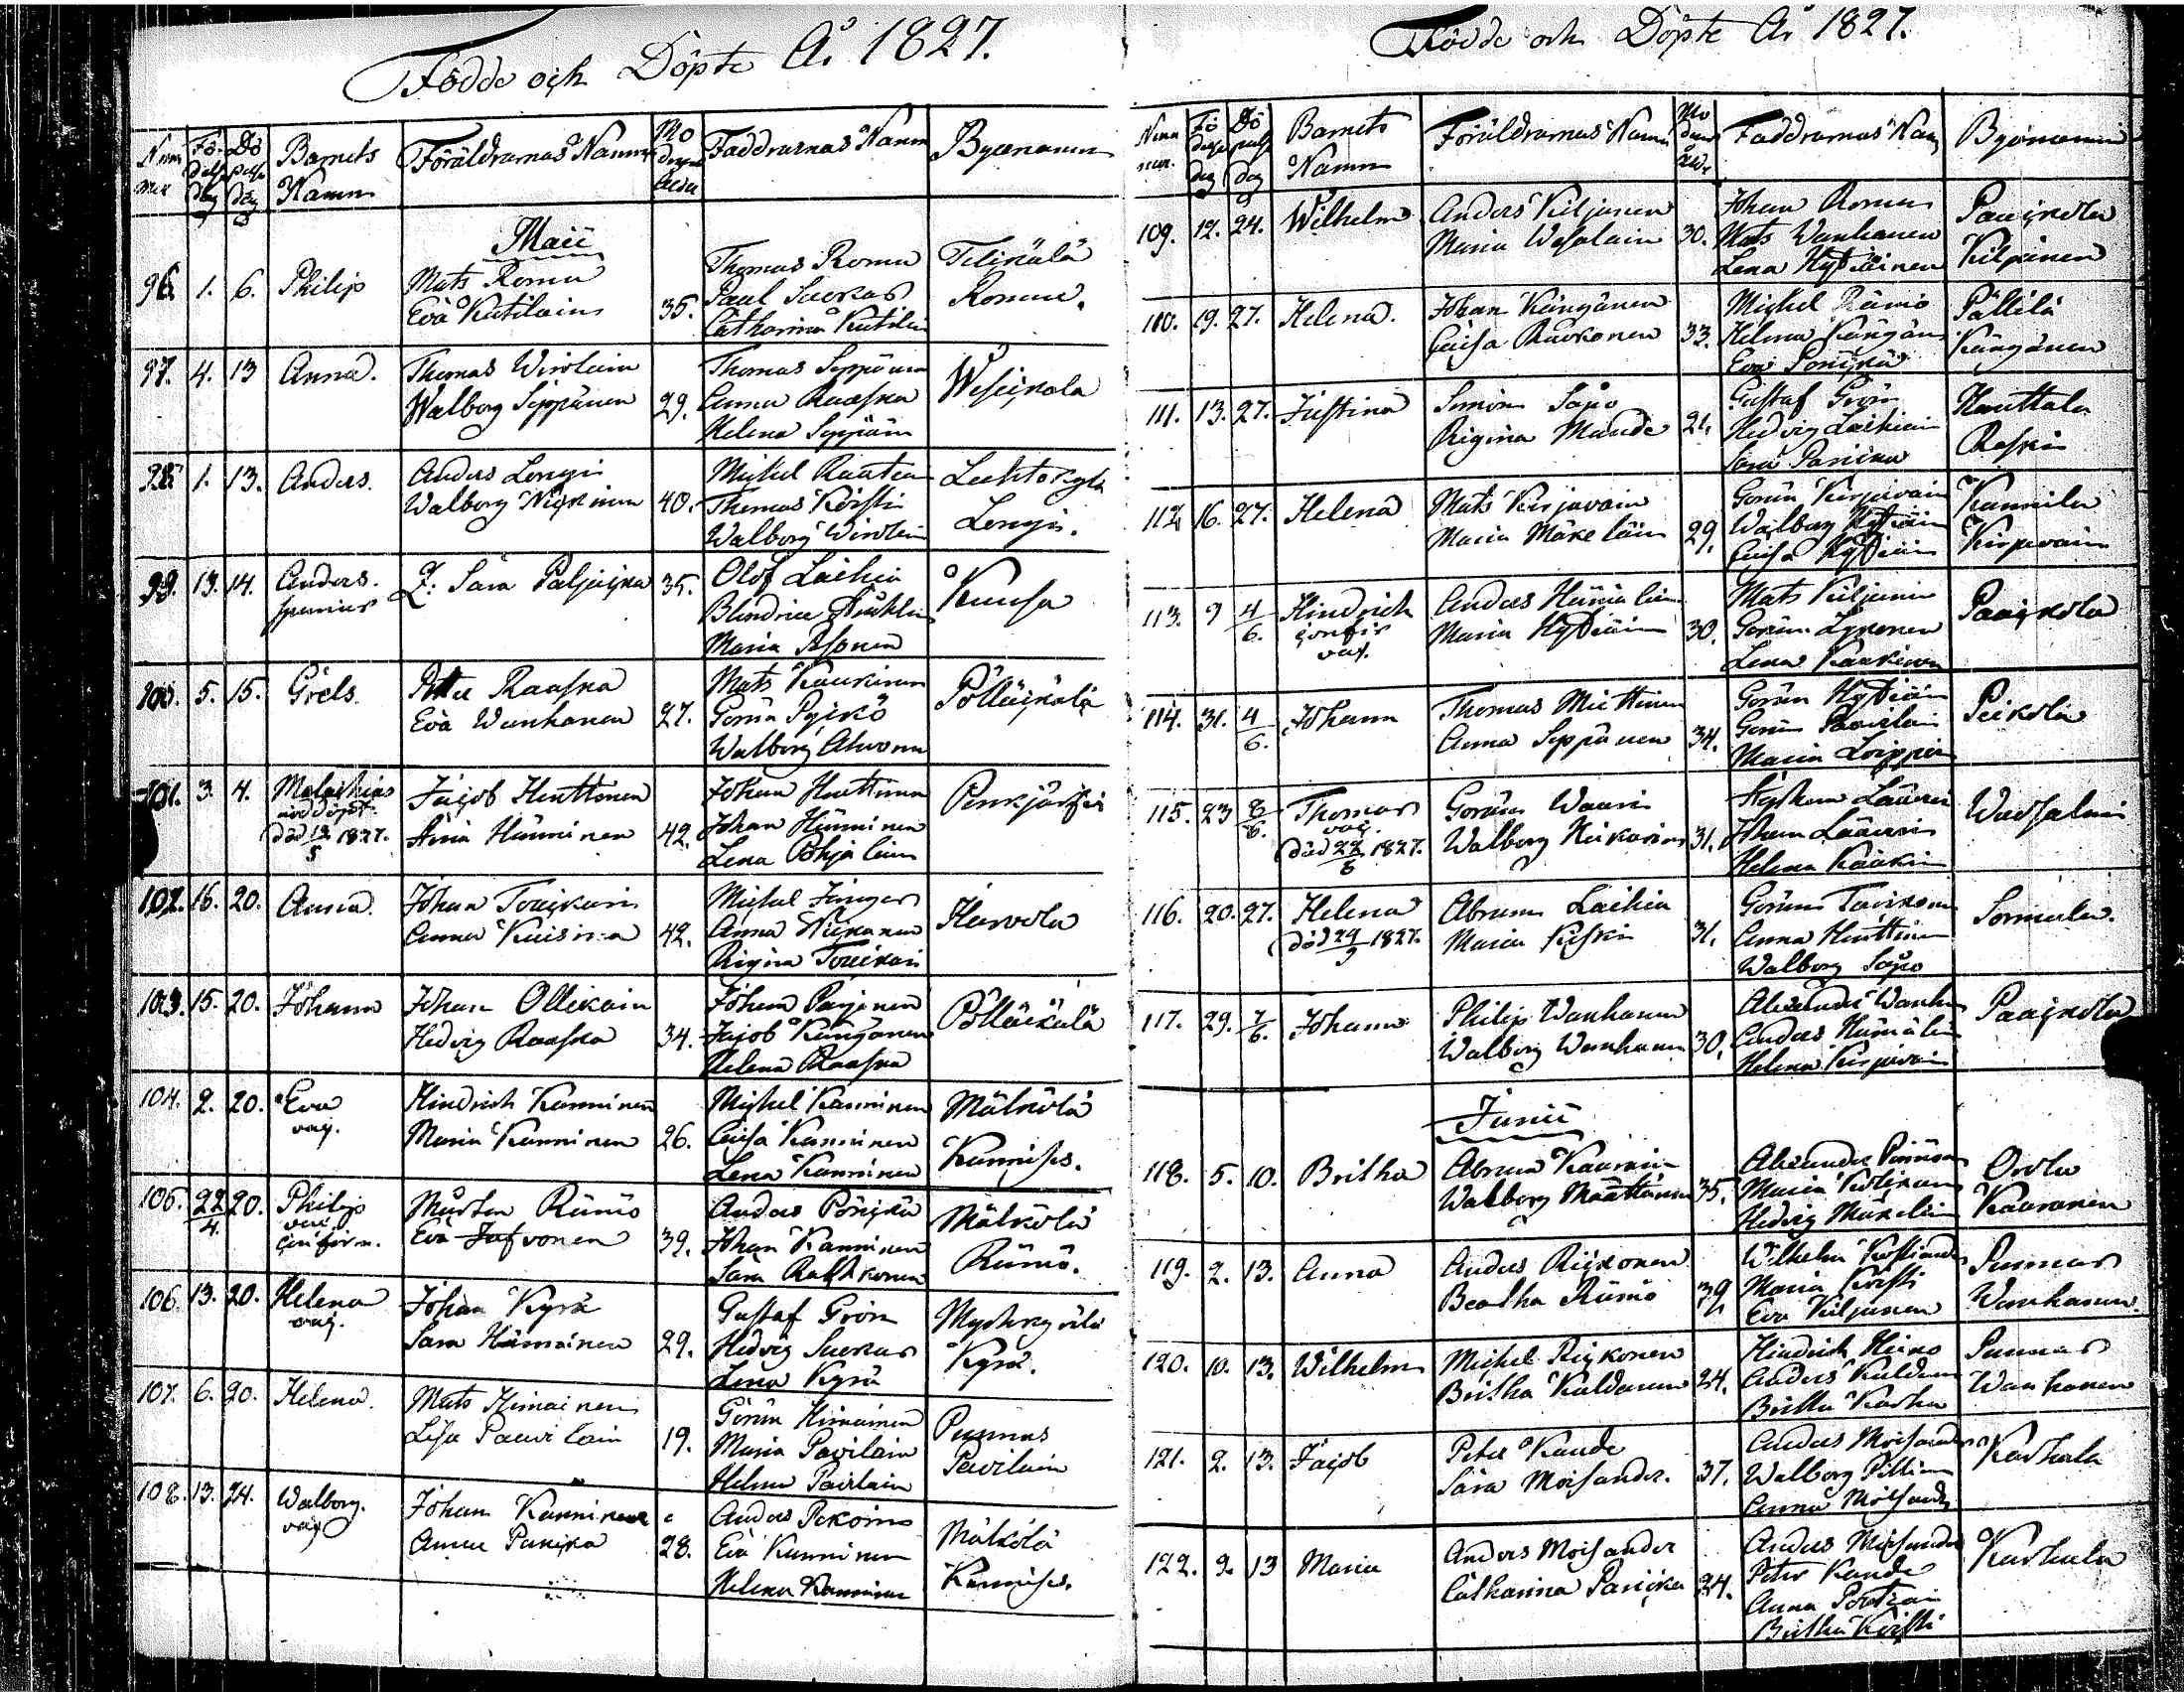 Födde och Döpte År 1827.
Num mer
Fö delse dag
Dö pelse dag
Barnets Namn
Föräldrarnas Namn
Mo drens ålder
Faddrarnas Namn
Byanamn
Maii
96. 1. 6. Philip
Mats Roma
Eva Kutilain 35.
Thomas Roma
Paul Suckas
Catharina Kutilain
Tilikälä
Romu.
97. 4. 13 Anna.
Thomas Wirolain
Walborg Seppänen 29.
Thomas Seppänen
Anna Raaska
Helena Seppäin
Weseikola
98. 1. 13. Anders.
Anders Longi
Walborg Nickinen 40.
Michel Rautiain
Thomas Körssi
Walborg Wirolain
Lehtokylä
Longi.
99. 13. 14. Anders.
spurius
Q. Sara Paljacka 35.
Olof Laihia
Maria Pesonen
Kuusa
100. 5. 15. Grels.
Petter Raaska
Eva Wanhanen 27.
Mats Kaukinen
Göran Pyikö
Walborg Ahvonen
Pölläickälä
101. 3. 4. Malachias
nöddöpt.
död 12/5 1827.
Jacob Huttunen
Stina Hänninen 42.
Johan Huttunen
Johan Hänninen
Lena Pohjalain
Punkjärfvi
102. 16. 20. Anna.
Johan Toickain
Anna Kuisma 42.
Michel Jinger
Anna Nickanen
Regina Toickain
Harvola
103. 15. 20. Johann
Johan Ollikain
Hedvig Raaska 34.
Johan Parjanen
Jacob Kängänen
Helena Raaska
Pölläckälä
104. 2. 20. Eva
vag.
Hindrich Kanninen
Maria Kanninen 26.
Michel Kanninen
Caisa Kanninen
Lena Kanninen
Mälkölä
Kannises.
105. 22/4 20. Philip
vac.
confirm.
Mårten Rämö
Eva Jufvonen 39.
Anders Pönickä
Johan Kanninen
Sara Rathkonen
Mälkölä
Rämö.
106. 13. 20. Helena
vag.
Johan Kyrä
Sara Hämäinen 29.
Gustaf Grön
Hedvig Suckar
Lena Kyrä
Kyrä.
107. 6. 20. Helena.
Mats Himainen
Lisa Pavilain 19.
Göran Himainen
Maria Pavilain
Helena Pavilain
Punnus
Pavilain
108. 13. 24. Walborg.
vag
Johan Kanninen
Anna Panicka 28.
Anders Pekoin
Eva Kanninen
Helena Kanninen
Mälkölä
Kannises.
Födde och Döpte År 1827.
Num mer.
Fö delse dag
Dö pelse dag
Barnets Namn
Föräldrarnas Namn
Mo drens åld.
Faddrarnas Nam
Byanamn
109. 12. 24. Wilhelm
Anders Kiljunen
Maria Wesalain 30.
Johan Romu
Mats Wanhanen
Lena Hytiäinen
Paaickola
Kiljunen
110. 19. 27. Helena.
Johan Kängänen
Caisa Raukonen 33.
Michel Rämö
Helena Kängän
Eva Pönickä
Pällilä
Kängänen
111. 13. 27. Justina
Simon Sapo
Regina Maude 21.
Gustaf Grön
Hedvig Laihiain
Sara Panicka
Huuttala
Raski
112. 16. 27. Helena
Mats Kirjavain
Maria Mäkeläin 29.
Göran Kirjavain
Walborg Hytiäin
Caisa Hytiäin
Kannila
Kirjavain
113. 9 4/6. Hindrich
confir
vag.
Anders Hämäläin
Maria Hytiäin 30.
Mats Kiljunen
Göran Lyponen
Lena Kaukinen
Paaickola
114. 31. 4/6. Johann
Thomas Miettinen
Anna Seppänen 34.
Göran Hytiäin
Göran Pavilain
Maria Loippo
Peikola
115. 23 8/6. Thomas
vag.
död 22/8 1827.
Göran Waari
Walborg Heikarin 31.
Stephan Lääveri
Johan Lääveri
Helena Kaakin
Wadsalmi
116. 20. 27. Helena
död 29/9 1827.
Abram Laihia
Maria Kiski 31.
Göran Toivonen
Anna Huttunen
Walborg Sapo
Sormula.
117. 29. 7/6. Johann
Philip Wanhanen
Walborg Wanhanen 30.
Alexander Wanha
Anders Hämäläin
Helena Kirjavain
Paaickola
Junii
118. 5. 10. Britha
Abram Kauranen
Walborg Määttänen 35.
Alexander Pönnönen
Maria Kolikain
Hedvig Mäkeläin
Orola
Kauranen
119. 2. 13. Anna
Anders Rickonen
Beatha Rämö 39
Wilhelm Koskiander
Maria Körssi
Eva Kiljunen
Punnus
Wanhanen.
120. 10. 13. Wilhelm
Michel Rickonen
Britha Kaldanen 24.
Hindrich Heino
Anders Kaldanen
Britha Karhu
Punnus
Wanhanen
121. 2. 13. Jacob
Peter Kaude
Sara Moisander. 37.
Anders Moisander
Walborg Pillinen
Anna Moisander
Karhula
122. 2. 13 Maria
Anders Moisander
Catharina Panicka 24.
Anders Moisander
Peter Kaude
Anna Portiain
Britha Körssi
Karhula